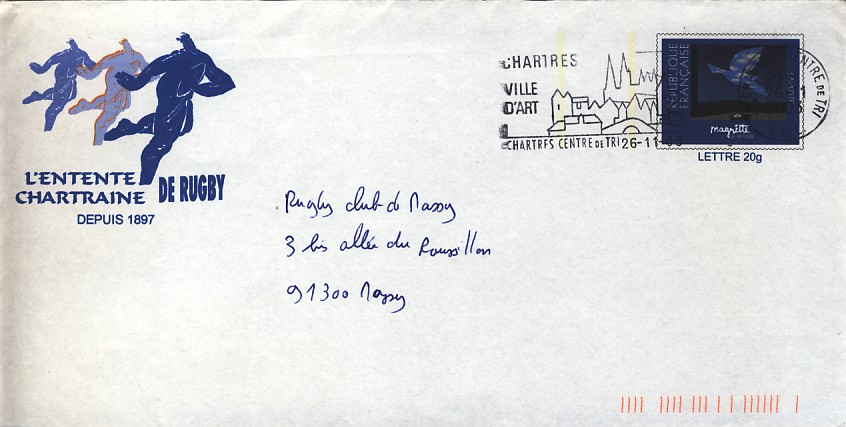 L'ENTENTE
CHARTRAINE DE RUGBY
DEPUIS 1897
CHARTRES
VILLE
D'ART
CHARTRES CENTRE DE TRI 26-11
RÉPUBLIQUE
FRANÇAISE
magritte
CENTRE DE TRI
LETTRE 20g
Rugby club de Massy
3 bis allée du Roussillon
91300 Massy